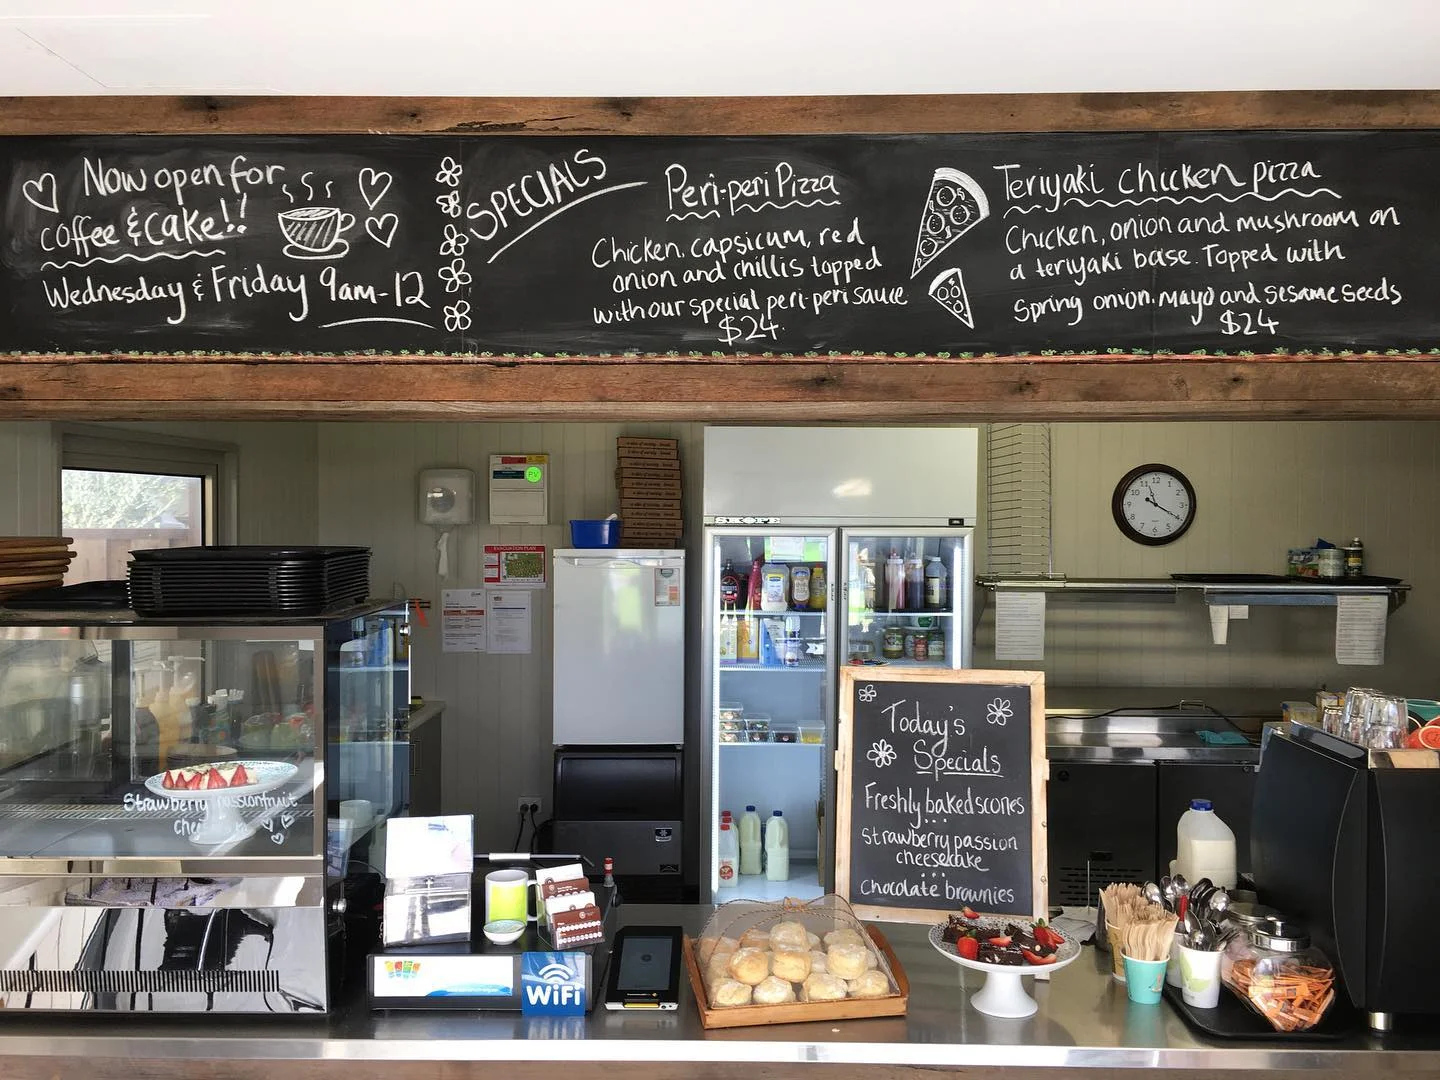 Now open for
coffee & cake!!
Wednesday & Friday 9am-12
SPECIALS
Peri-peri Pizza
Chicken, capsicum, red
onion and chillis topped
with our special peri-peri sauce
$24
Teriyaki chicken pizza
Chicken, onion and mushroom on
a teriyaki base. Topped with
Spring onion, mayo and sesame seeds
$24
SKOPE
EVACUATION PLAN
Today's
Specials
Freshly baked scones
Strawberry passion
cheesecake
Chocolate brownies
Strawberry passionfruit
WiFi